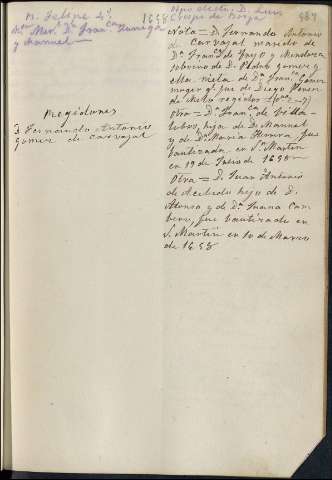 R. Felipe 4º
Mtre Mor. D. Fran.co Zuniga
y Manuel
1658
Obpo electo. D. Luis
Crespo de Borja
487
Regidores
D. Fernando Antonio
Gomez de Carvajal
Nota = D. Fernando Antonio
de Carvajal marido de
Dª Fran.ca de Yago y Mendoza
sobrino de D. Pedro Gomez y
Ma. nieta de Dª Fran.ca Gomez
muger q.e fue de Diego Ponce
de Nieto regidor
otra = Dª Fran.ca de Villa-
lobos, hija de D. Manuel
y de Dª Maria Herrera fue
bautizada en S. Martin
en 19 de Junio de 1658
Otra = D. Juan Antonio
de Acebedo hijo de D.
Alonso y de Dª Juana Cam-
bero, fue bautizado en
S. Martin en 10 de Marzo
de 1658